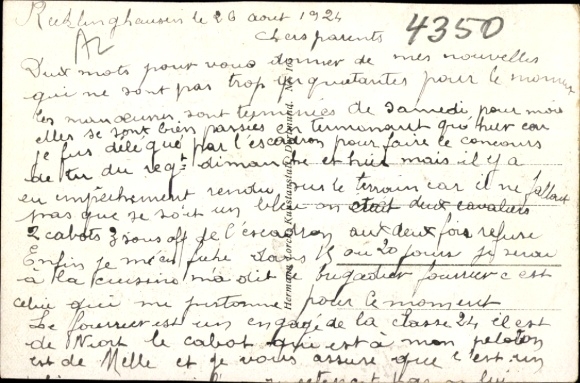 Recklinghausen le 26 aout 1924
4350
A2
Chers parents
Deux mots pour vous donner de mes nouvelles
qui ne sont pas trop inquietantes pour le moment
Les manœuvres sont terminées de Samedi pour moi
elles se sont bien passées en termongnt qu'hier car
je fus délégué par l'escadron pour faire le concours
de tir du regt dimanche et hier mais il y a
eu empêchement rendu sur le terrain car il ne fallait
pas que se soit un bleu on etait deux cavaliers
2 cabots 2 sous off de l'escadron aux deux fois refuse
Enfin je m'en fiche dans 15 ou 20 jours je serai
à la cuisine m'a dit le brigadier fourrier c'est
celui qui me pistonne pour le moment
Le fourrier est un engagé de la Classe 24 il est
de Niort le cabot qui est à mon peloton
est de Melle et je vous assure que c'est un
Hermann Lorch, Kunstanstalt, Dortmund.